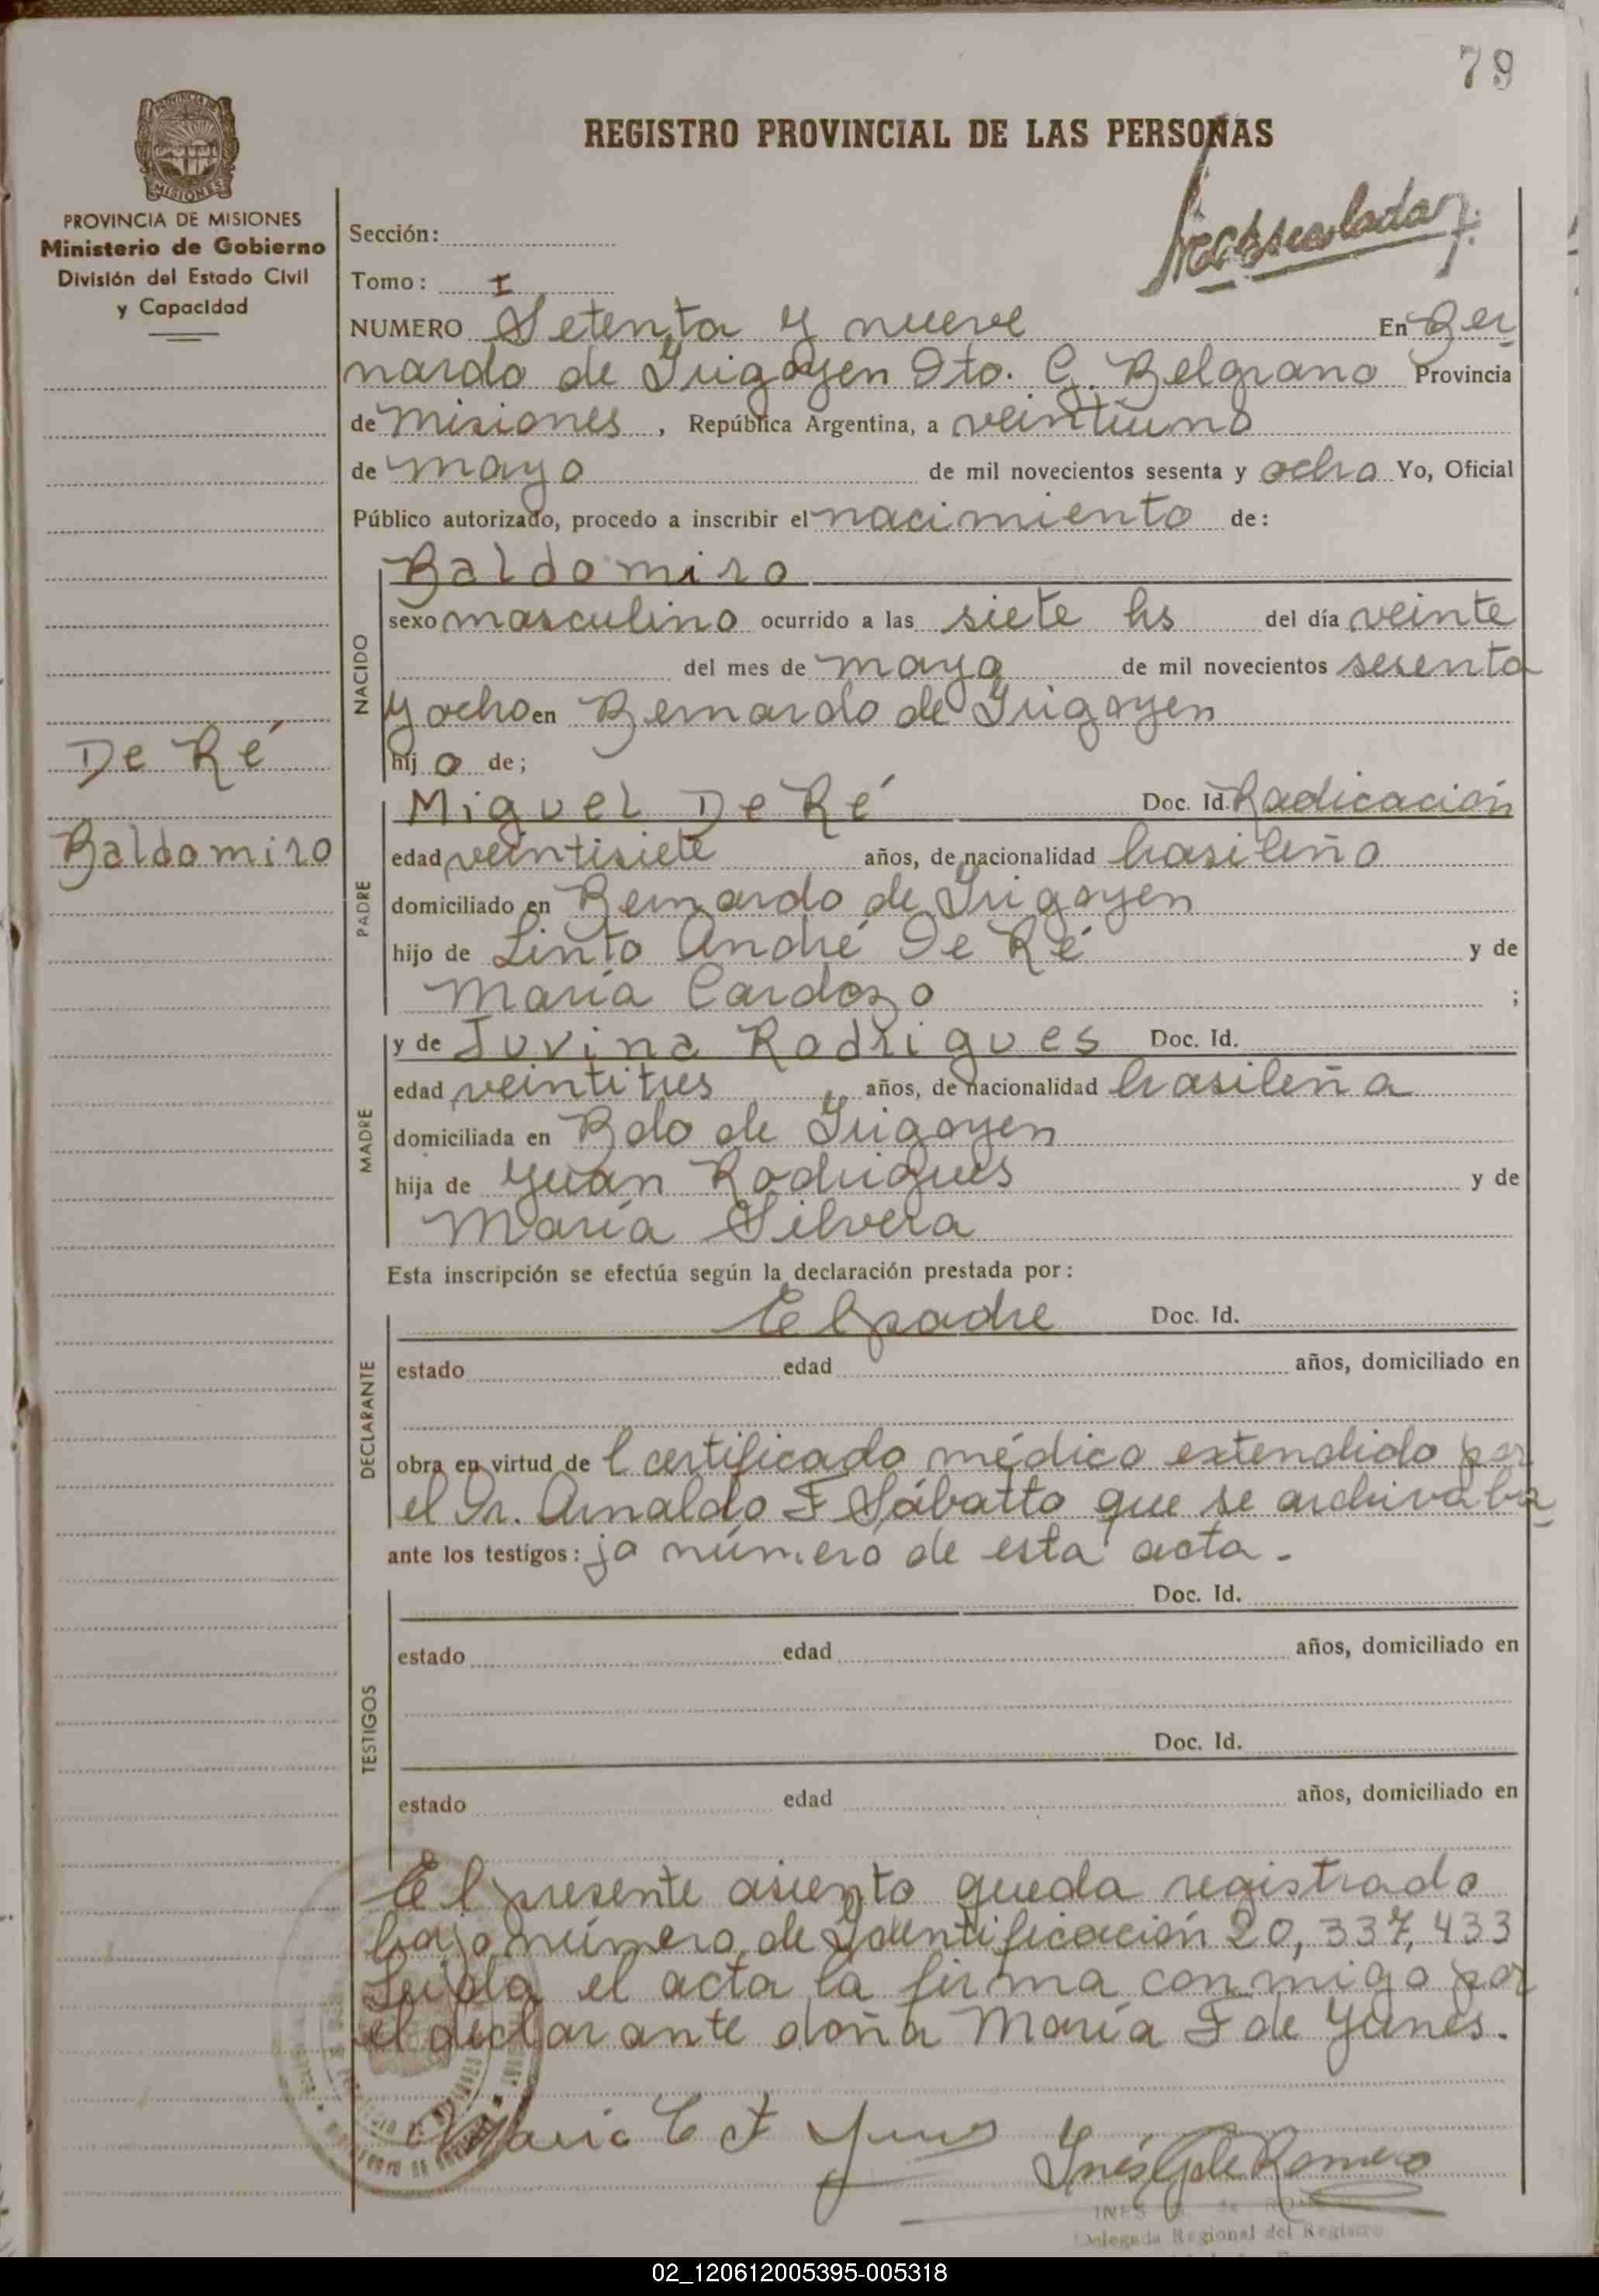 79
REGISTRO PROVINCIAL DE LAS PERSONAS
PROVINCIA DE MISIONES
Ministerio de Gobierno
División del Estado Civil
y Capacidad
Sección:
Tomo: I
NUMERO Setenta y nueve En Ber
nardo de Irigoyen Dto. G. Belgrano Provincia
de Misiones, República Argentina, a veintiuno
de mayo de mil novecientos sesenta y ocho Yo, Oficial
Público autorizado, procedo a inscribir el nacimiento de:
NACIDO
Baldomiro
sexo masculino ocurrido a las siete hs del día veinte
del mes de mayo de mil novecientos sesenta
y ocho en Bernardo de Irigoyen
hijo de;
De Ré
Baldomiro
PADRE
Miguel De Ré Doc. Id. Radicación
edad veintisiete años, de nacionalidad brasileño
domiciliado en Bernardo de Irigoyen
hijo de Linto André De Ré y de
María Cardozo ;
MADRE
y de Juvina Rodrigues Doc. Id.
edad veintitres años, de nacionalidad brasileña
domiciliada en Bdo de Irigoyen
hija de Yuan Rodrigues y de
María Silvera
Esta inscripción se efectúa según la declaración prestada por:
DECLARANTE
El padre Doc. Id.
estado edad años, domiciliado en
obra en virtud de l certificado médico extendido por
el Dr. Arnaldo F Sábatto que se archiva ba
ante los testigos: jo número de esta acta.
TESTIGOS
Doc. Id.
estado edad años, domiciliado en
Doc. Id.
estado edad años, domiciliado en
El presente asiento queda registrado
bajo número de Identificación 20,337,433
Leída el acta la firma conmigo por
el declarante doña María F de Yunes.
María E F Yunes
Inés G de Romero
INES G. de ROMERO
Delegada Regional del Registro
02_120612005395-005318